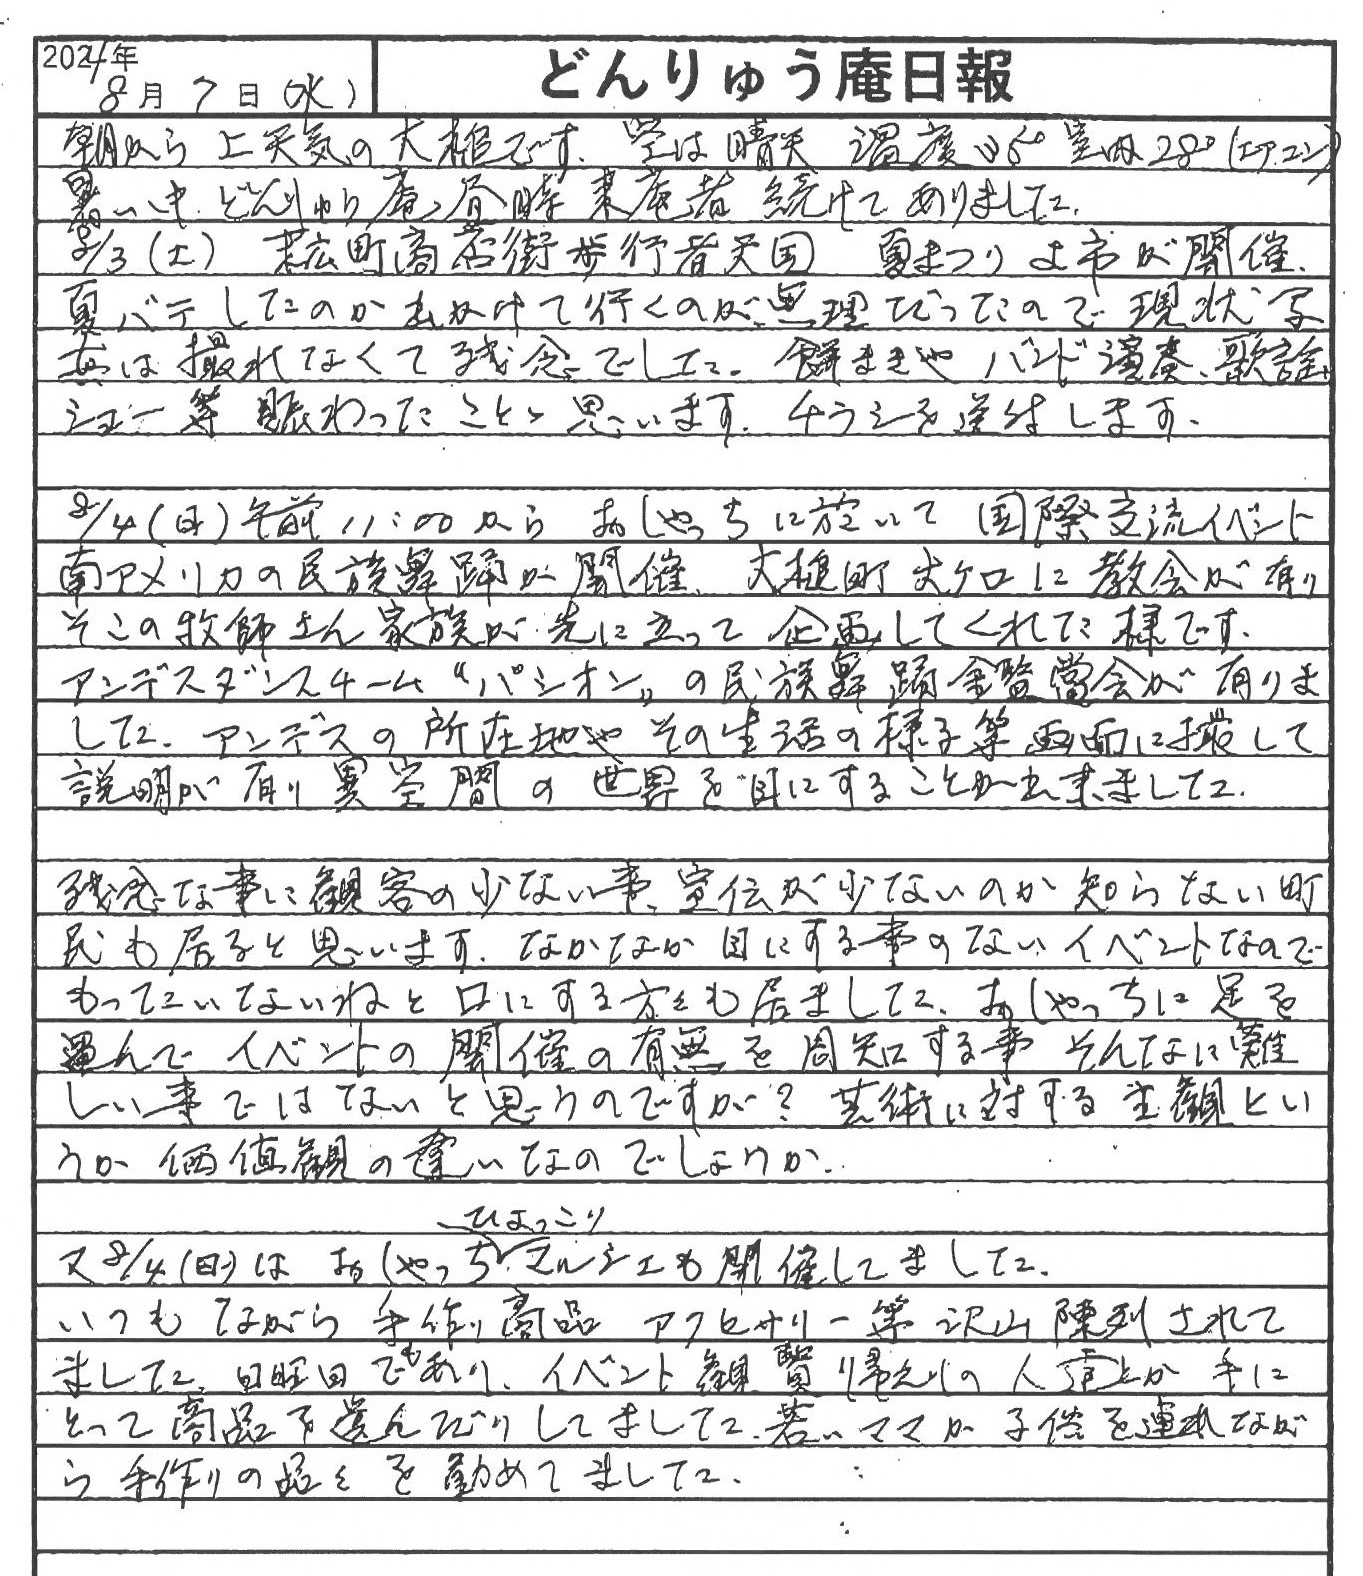 2024年
8月7日(水)
どんりゅう庵日報
朝から上天気の大槌です、空は晴天 温度36° 室内28°(エアコン)
暑い中、どんりゅう庵、昼時来庵者続けてありました。
8/3(土) 末広町商店街歩行者天国 夏まつりよ市が開催、
夏バテしたのか出かけて行くのが無理だったので現状写
真は撮れなくて残念でした。餅まきや バンド演奏、歌謡
ショー等賑わったことゝ思います。チラシを送付します。
8/4(日)午前11:00から おしゃっちに於いて 国際交流イベント
南アメリカの民族舞踊が開催、大槌町大ケロに教会が有り
そこの牧師さん家族が先に立って企画してくれた様です。
アンデスダンスチーム“パシオン”の民族舞踊鑑賞会が有りま
した。アンデスの所在地や その生活の様子等画面に撮して
説明が有り異空間の世界を目にすることが出来ました。
残念な事に観客の少ない事、宣伝が少ないのか知らない町
民も居ると思います。なかなか目にする事のないイベントなので
もったいないねと口にする方々も居ました。おしゃっちに足を
運んで イベントの開催の有無を周知する事 そんなに難
しい事ではないと思うのですが？ 芸術に対する主観とい
うか価値観の違いなのでしょうか。
ひょっこり
又8/4(日)は おしゃっち マルシェも開催してました。
いつもながら 手作り商品 アクセサリー等 沢山陳列されて
ました。日曜日でもあり、イベント観賞帰えりの人達とか 手に
とって商品を選んだりしてました。若いママが子供を連れなが
ら手作りの品々を勧めてました。